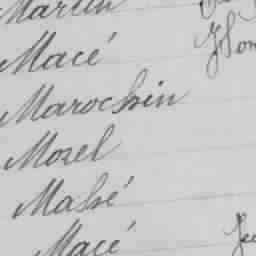 Martin
Macé
Marochin
Morel
Mahé
Macé